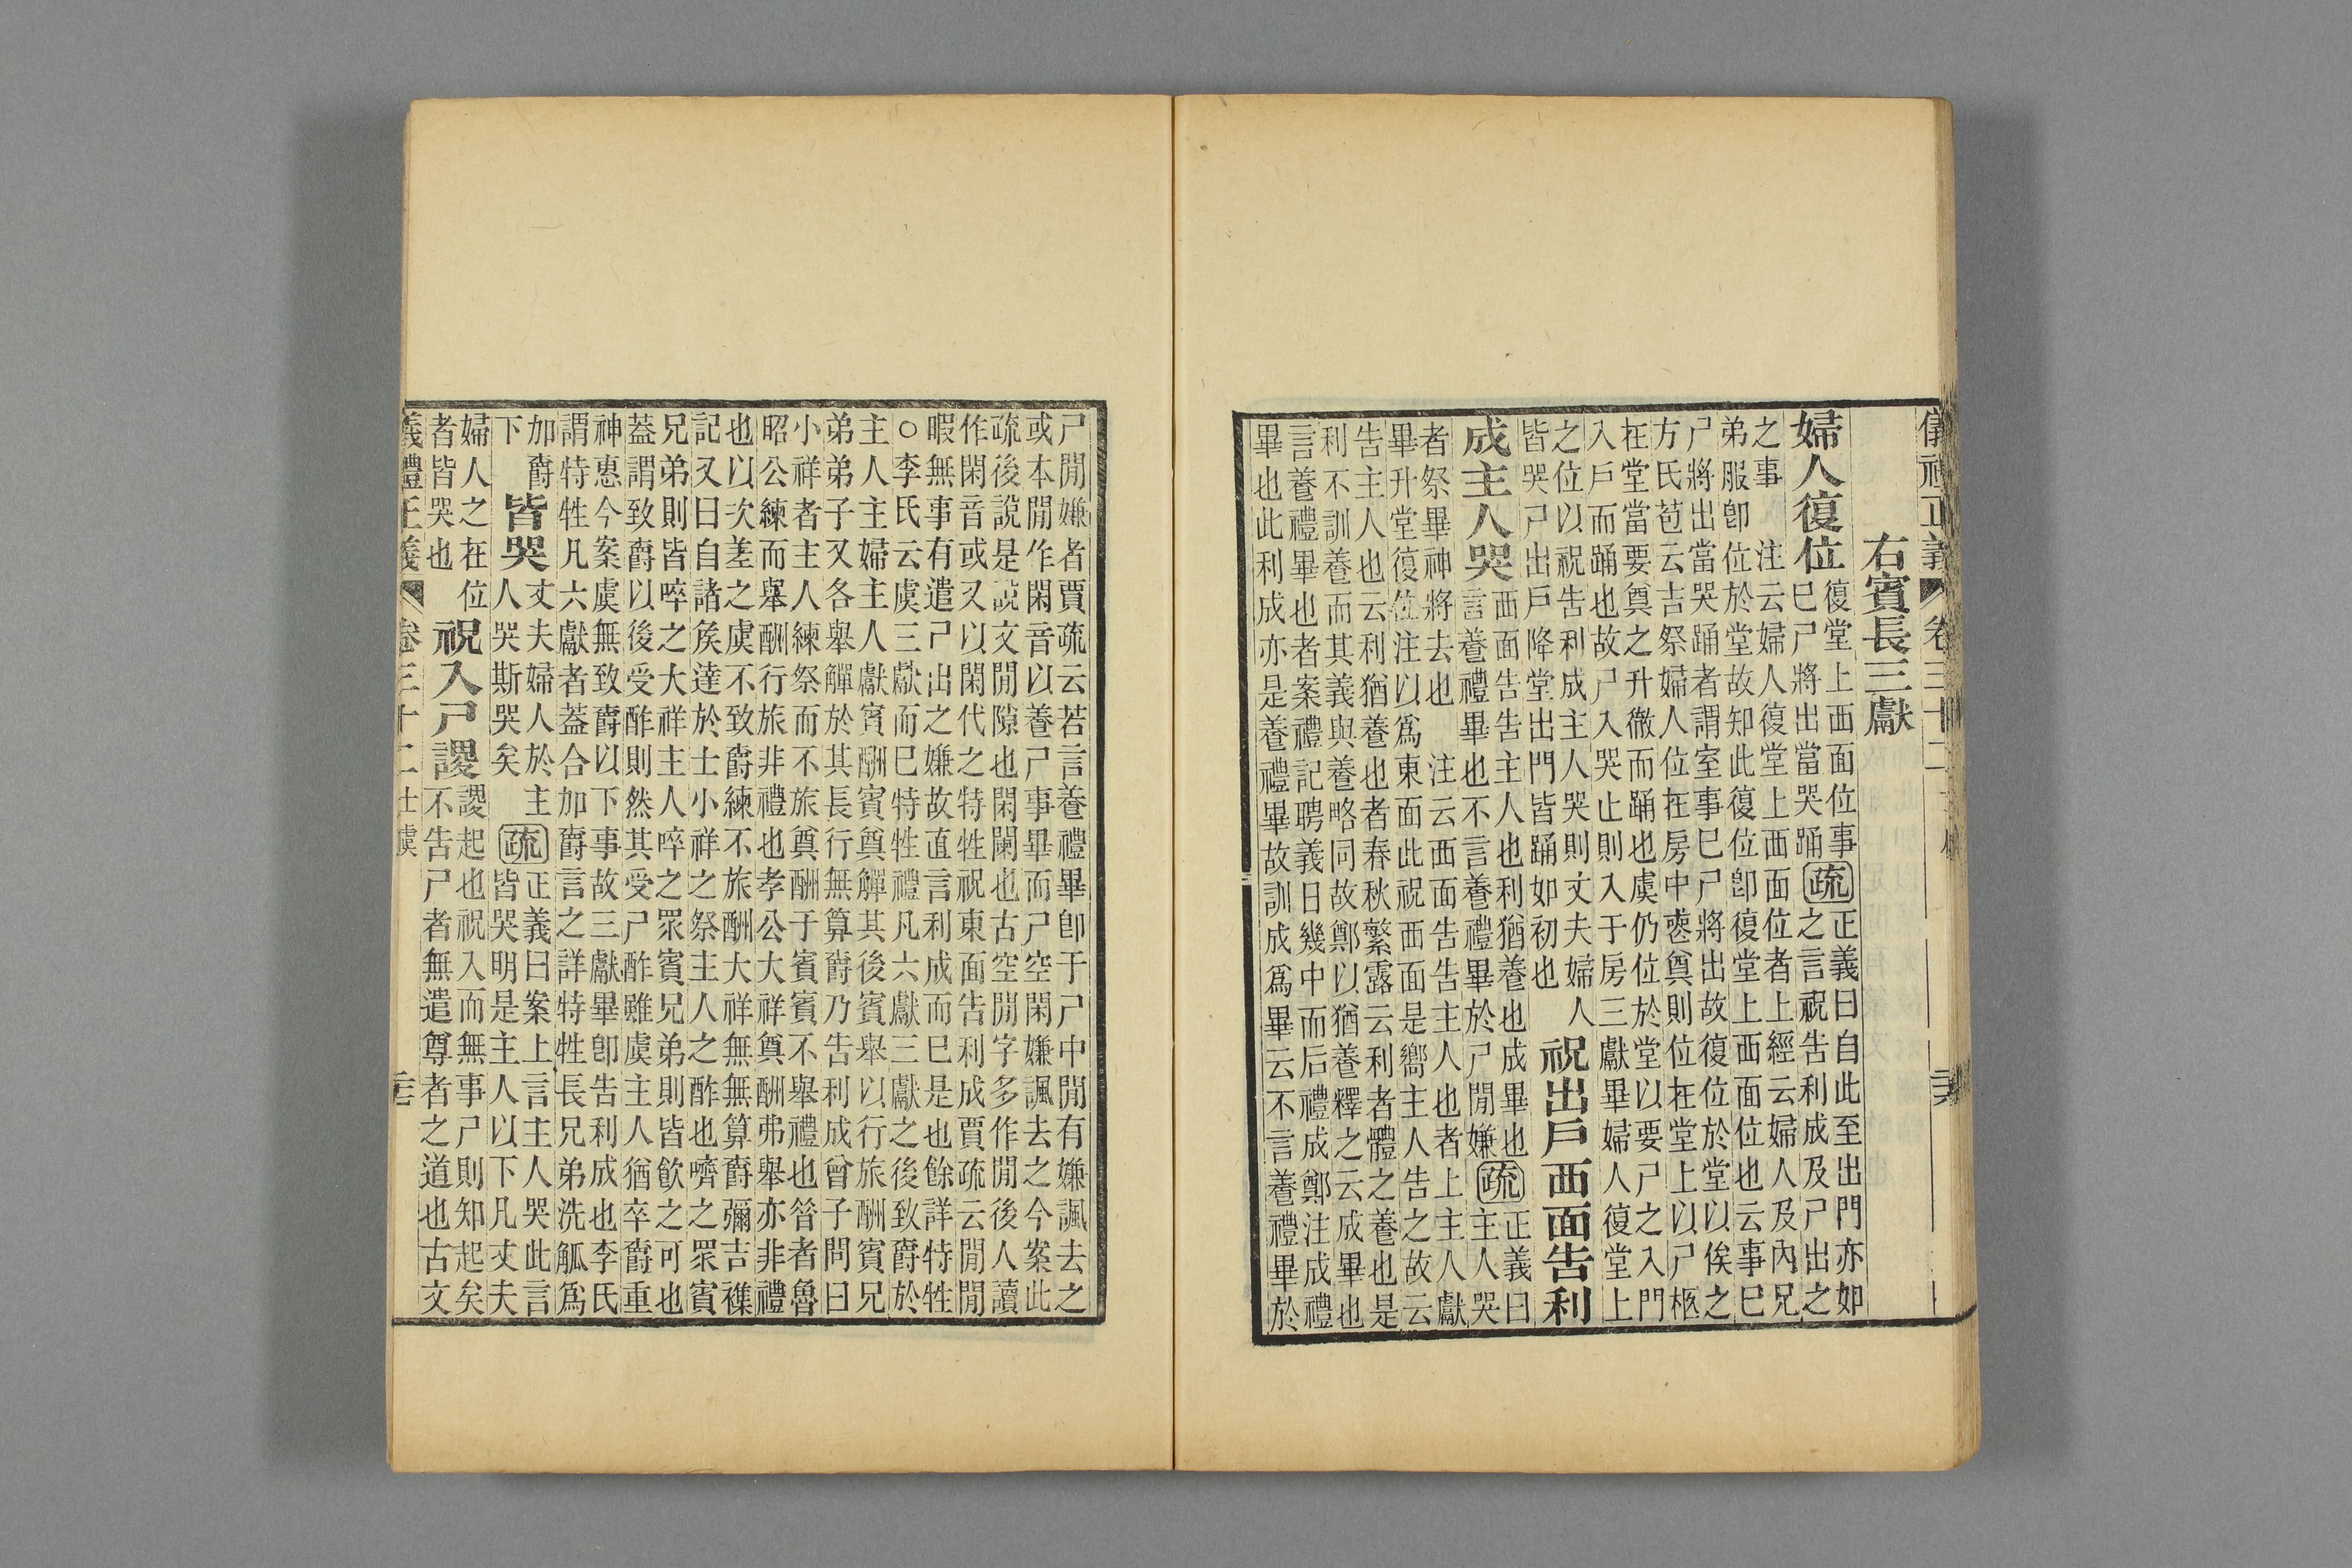 儀禮正義 卷三十二 士虞 二六
右賓長三獻
婦人復位
復堂上西面位事
巳尸將出當哭踊
疏
正義曰自此至出門亦如
之言祝告利成及尸出之
之事 注云婦人復堂上西面位者上經云婦人及內兄
弟服卽位於堂故知此復位卽復堂上西面位也云事巳
尸將出當哭踊者謂室事巳尸將出故復位於堂以俟之
方氏苞云吉祭婦人位在房中薦奠則位在堂上以尸柩
在堂當要奠之升徹而踊也虞仍位於堂以要尸之入門
入戶而踊也故尸入哭止則入于房三獻畢婦人復堂上
之位以祝告利成主人哭則丈夫婦人
皆哭尸出戶降堂出門皆踊如初也
祝出戶西面告利
成主人哭
西面告告主人也利猶養也成畢也
言養禮畢也不言養禮畢於尸閒嫌
疏
正義曰
主人哭
者祭畢神將去也 注云西面告告主人也者上主人獻
畢升堂復位注以爲東面此祝西面是嚮主人告之故云
告主人也云利猶養也者春秋繁露云利者體之養也是
利不訓養而其義與養略同故鄭以猶養釋之云成畢也
言養禮畢也者案禮記聘義日幾中而后禮成鄭注成禮
畢也此利成亦是養禮畢故訓成爲畢云不言養禮畢於
尸閒嫌者賈疏云若言養禮畢卽于尸中閒有嫌諷去之
或本閒作閑音以養尸事畢而尸空閑嫌諷去之今案此
疏後說是説文閒隙也閑闌也古空閒字多作閒後人讀
作閑音或又以閑代之特牲祝東面告利成賈疏云閒閒
暇無事有遣尸出之嫌故直言利成而巳是也餘詳特牲
○李氏云虞三獻而巳特牲禮凡六獻三獻之後致爵於
主人主婦主人獻賓酬賓奠觶其後賓舉以行旅酬賓兄
弟弟子又各舉觶於其長行無算爵乃告利成曾子問曰
小祥者主人練祭而不旅奠酬于賓賓不舉禮也昝者魯
昭公練而舉酬行旅非禮也孝公大祥奠酬弗舉亦非禮
也以次差之虞不致爵練不旅酬大祥無無算爵彌吉襍
記又曰自諸矦達於士小祥之祭主人之酢也嚌之眾賓
兄弟則皆啐之大祥主人啐之眾賓兄弟則皆飮之可也
蓋謂致爵以後受酢則然其受尸酢雖虞主人猶卒爵重
神惠今案虞無致爵以下事故三獻畢卽告利成也李氏
謂特牲凡六獻者蓋合加爵言之詳特牲長兄弟洗觚爲
加爵
下
皆哭
丈夫婦人於主
人哭斯哭矣
疏
正義曰案上言主人哭此言
皆哭明是主人以下凡丈夫
婦人之在位
者皆哭也
祝入尸謖
謖起也祝入而無事尸則知起矣
不告尸者無遣尊者之道也古文
義禮正義 卷三十二 士虞 二七